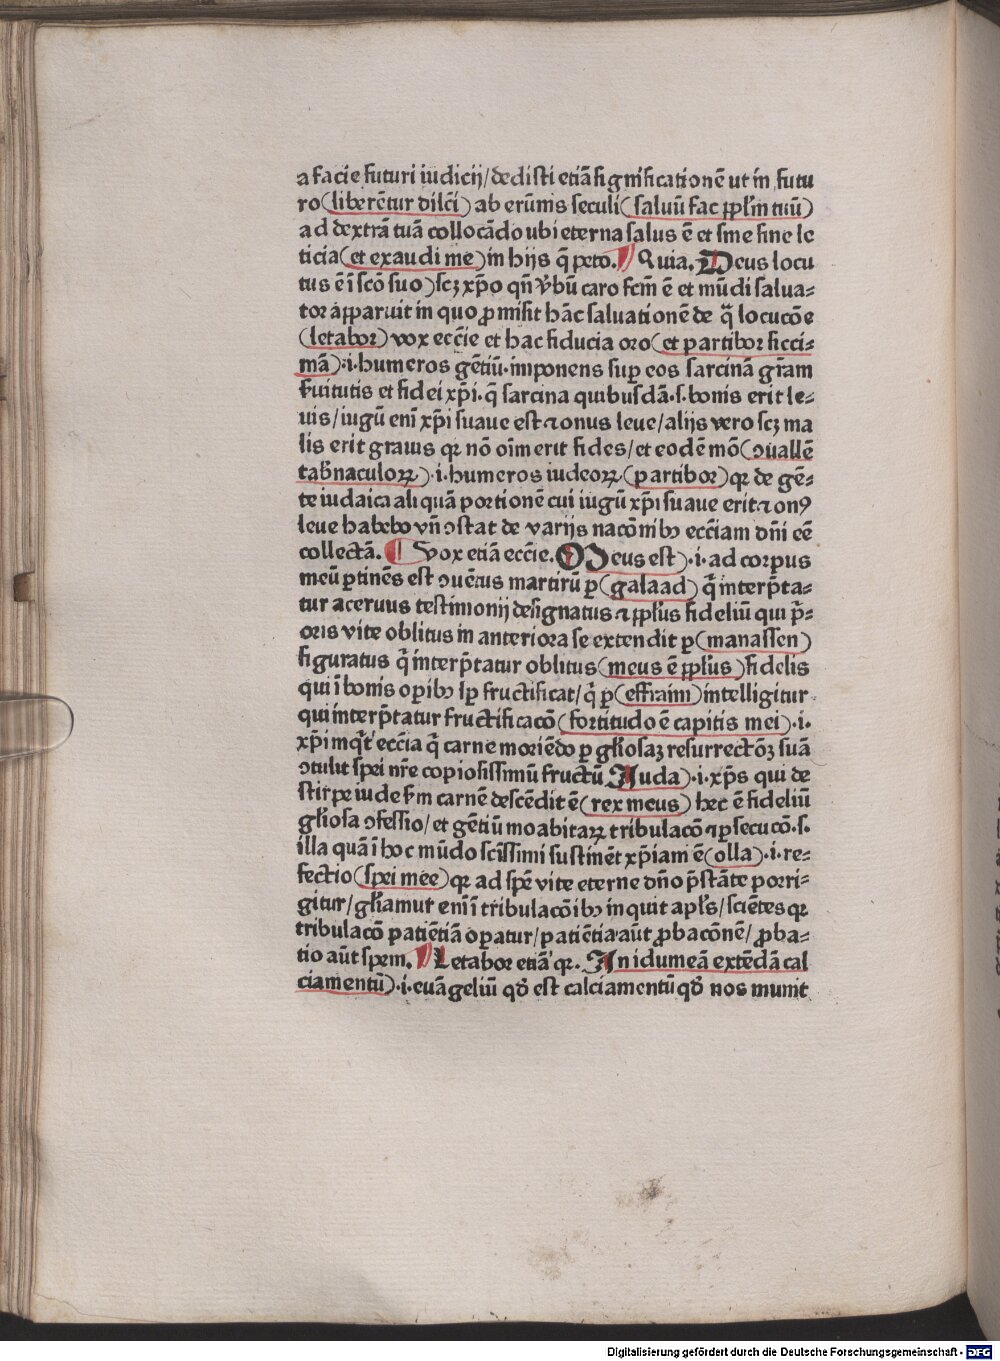 a facie futuri iudicij/dedisti etiā significationē ut in futu
ro(liberētur dilc̄i) ab erūnis seculi(saluū fac ꝑpl̄m tuū)
ad dextrā tuā collocādo ubi eterna salus ē et sine fine le
ticia(et exaudi me)in hijs q̄ peto. Quia. Deus locu
tus ē ī sc̄o suo)scꝫ xp̄o qn̄ v̄bū caro fc̄m ē et mūdi salua⸗
tor apparuit in quo ꝓmisit hāc saluationē de q̄ locuc̄oe
(letabor)vox ecc̄ie et hac fiducia oro(et partibor sicci⸗
mā)·i·humeros gētiū·imponens suꝑ eos sarcinā gr̄am
s̄uitutis et fidei xp̄i·q̄ sarcina quibusdā·s·bonis erit le⸗
uis/iugū enī xp̄i suaue est ⁊ onus leue/alijs vero scꝫ ma
lis erit grauis qꝛ nō oīm erit fides/et eodē mō(ↄuallē
tab̄naculoꝝ)·i·humeros iudeoꝝ(partibor)qꝛ de gē⸗
te iudaica aliquā portionē cui iugū xp̄i suaue erit ⁊ onꝰ
leue habebo vn̄ ↄstat de varijs nac̄onibꝫ ecc̄iam dn̄i eē
collectā. Vox etiā ecc̄ie. Meus est)·i·ad corpus
meū ꝑtinēs est ↄuētus martirū ꝑ(galaad) q̄ interp̄ta⸗
tur aceruus testimonij designatus ⁊ ꝑpl̄us fideliū qui p̄⸗
oris vite oblitus in anteriora se extendit ꝑ(manassen)
figuratus q̄ interp̄tatur oblitus(meus ē ꝑpl̄us)fidelis
qui ī bonis oꝑibꝫ sꝑ fructificat/q̄ ꝑ(effraim)intelligitur
qui interp̄tatur fructificac̄o(fortitudo ē capitis mei)·i·
xp̄i inq̄t ecc̄ia q̄ carne moriēdo ꝑ gl̄iosaꝫ resurrectōꝫ suā
ↄtulit spei nr̄e copiosissimū fructū Iuda)·i·xp̄s qui de
stirpe iude s̄m carnē descēdit ē(rex meus) hec ē fideliū
gl̄iosa ↄfessio/et gētiū moabitaꝝ tribulac̄o ⁊ ꝑsecuc̄o·s·
illa quā ī hoc mūdo sc̄issimi sustinēt xp̄iam ē(olla)·i·re⸗
fectio(spei mee)qꝛ ad spē vite eterne dn̄o p̄stāte porri⸗
gitur/gl̄iamur enī ī tribulac̄oibꝫ inquit apl̄s/sciētes qꝛ
tribulac̄o patiētiā oꝑatur/patiētia aūt ꝓbac̄onē/ꝓba⸗
tio aūt spem. Letabor etiā qꝛ. In idumeā extēdā cal
ciamentū)·i·euāgeliū qd̄ est calciamentū qd̄ nos munit
Digitalisierung gefördert durch die Deutsche Forschungsgemeinschaft - DFG